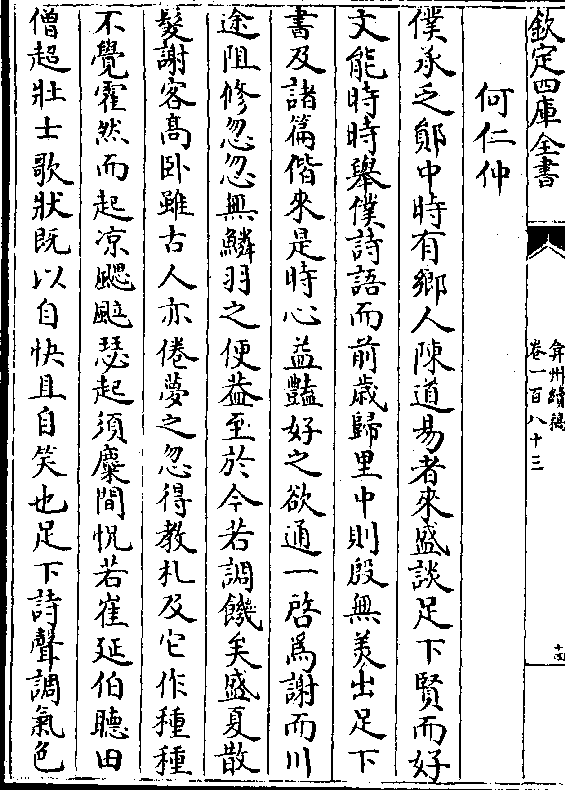 欽定四庫全書
弇州續稿
卷一百八十三
十四
何仁仲
僕承乏鄖中時有鄉人陳道易者來盛談足下賢而好
文能時時舉僕詩語而前歲歸里中則殷無美出足下
書及諸篇偕來是時心益豔好之欲通一啓為謝而川
途阻修忽忽無鱗羽之便葢至於今若調饑矣盛夏散
髮謝客高卧雖古人亦倦夢之忽得教札及它作種種
不覺霍然而起凉颸颯瑟起須麋間恍若崔延伯聽田
僧超壯士歌狀既以自快且自笑也足下詩聲調氣色